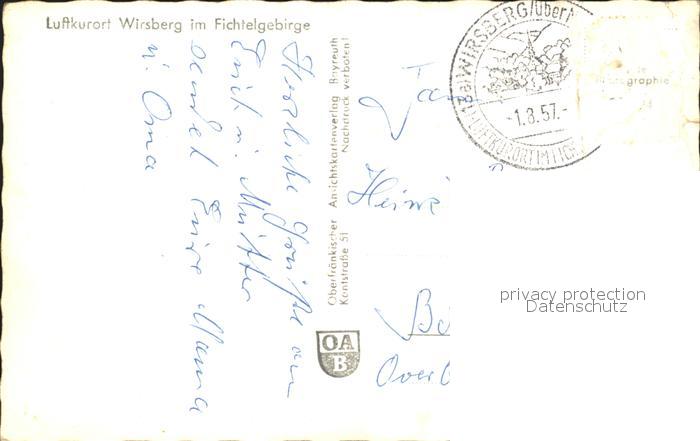 Luftkurort Wirsberg im Fichtelgebirge
Herzliche Grüße an
Erich u. Mutter
sendet Eure Mama
u. Oma
Oberfränkischer Ansichtskartenverlag Bayreuth
Kantstraße 51 Nachdruck verboten!
OA
B
WIRSBERG/über
-1.8.57.-
LUFTKURORT IM FICH
graphie
Fam
Heinr
privacy protection
Datenschutz